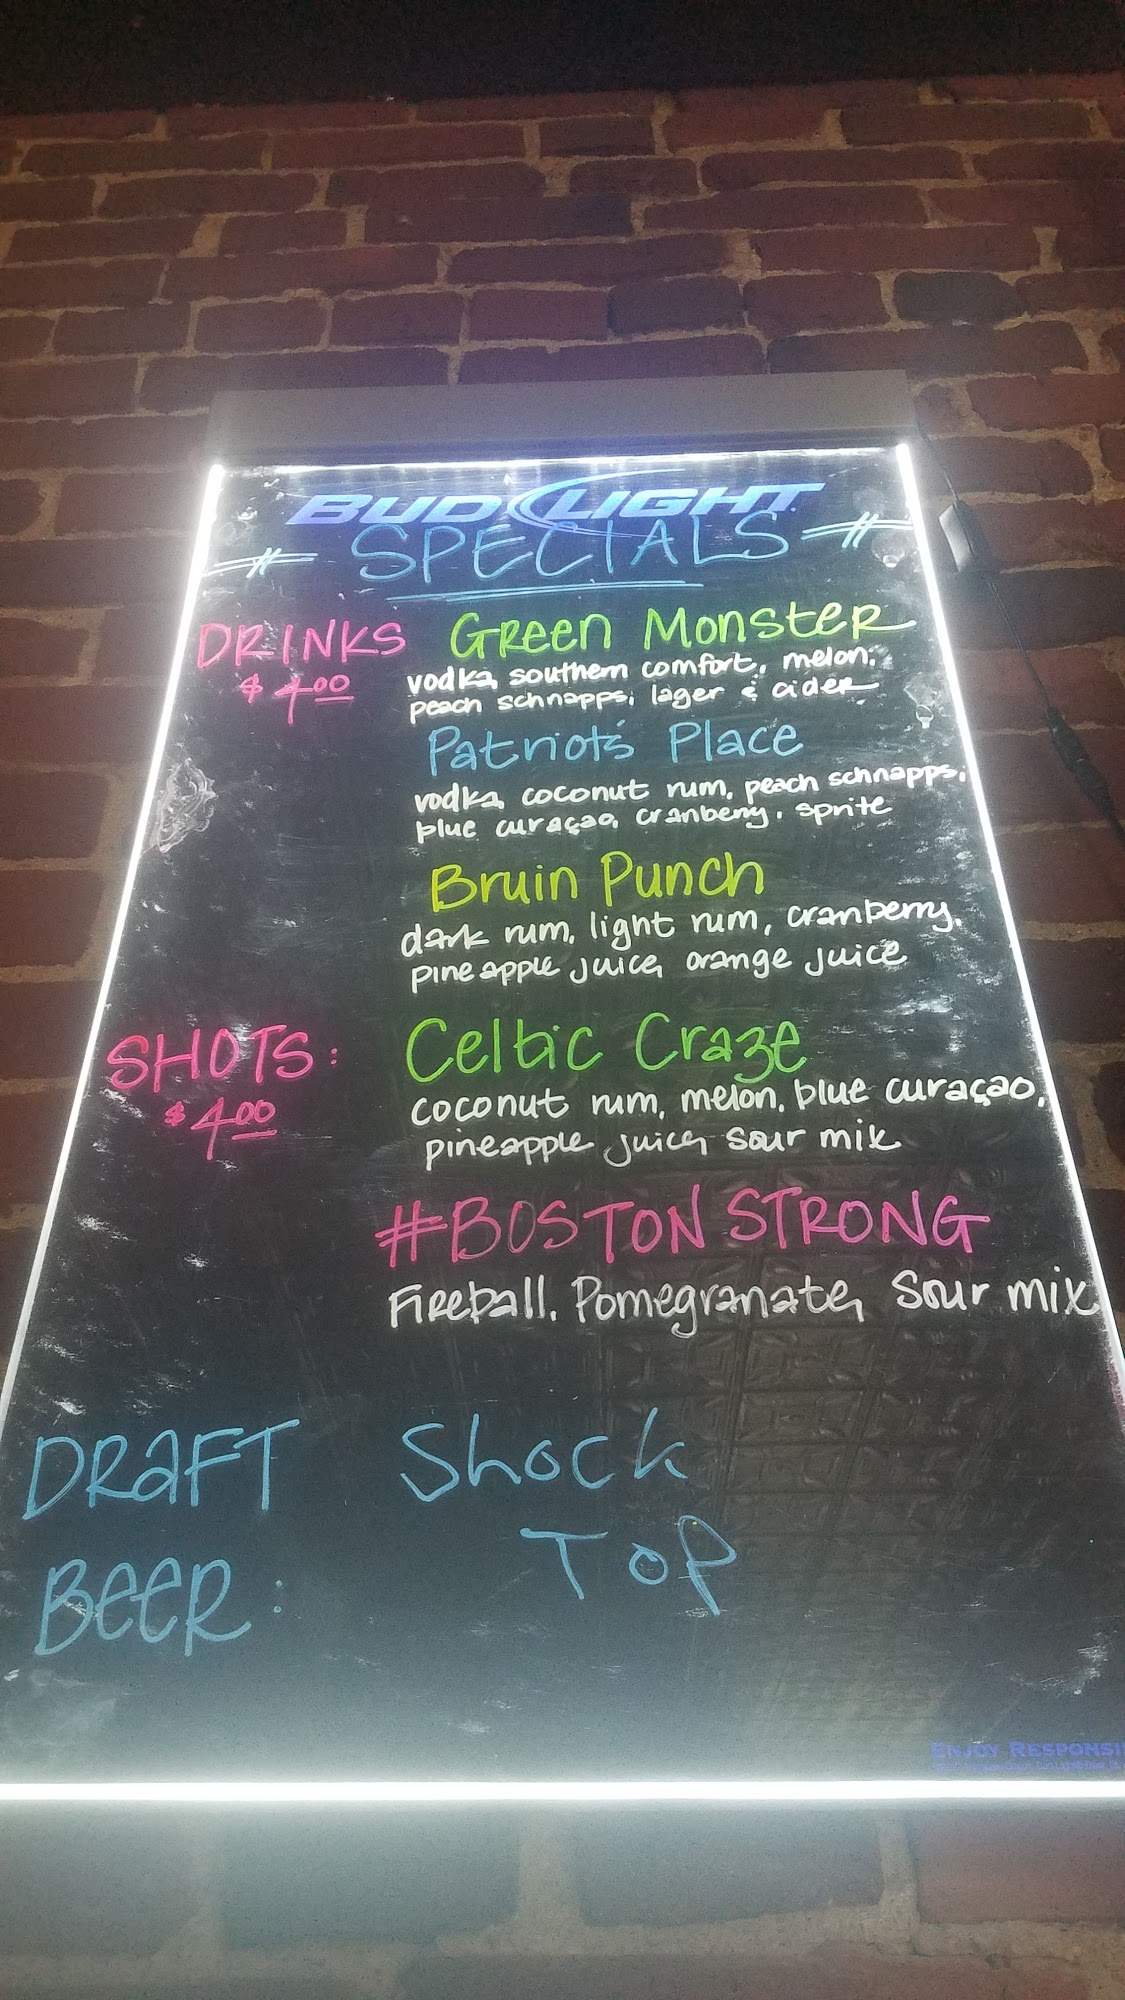 BUD LIGHT
# SPECIALS #
DRINKS Green Monster
$4.00 vodka, southern comfort, melon,
peach schnapps, lager & cider
Patriot's Place
vodka, coconut rum, peach schnapps,
blue curaçao, cranberry, sprite
Bruin Punch
dark rum, light rum, cranberry,
pineapple juice, orange juice
SHOTS: Celtic Craze
$4.00 coconut rum, melon, blue curaçao,
pineapple juice, sour mix
#BOSTON STRONG
Fireball, Pomegranate, Sour mix
DRAFT Shock
BEER: Top
ENJOY RESPONSI